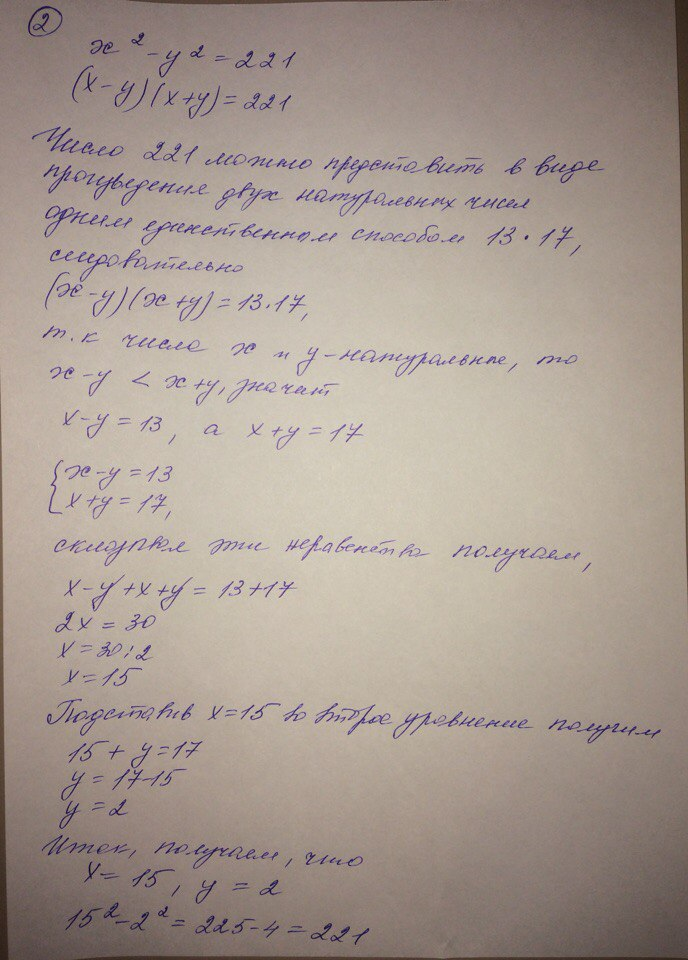 2
x² - y² = 221
(x-y)(x+y) = 221
Число 221 можно представить в виде
произведения двух натуральных чисел
одним единственным способом 13 · 17,
следовательно
(x-y)(x+y) = 13·17,
т.к числа x и y - натуральные, то
x-y < x+y, значит
x-y = 13, а x+y = 17
{ x-y = 13
x+y = 17,
складывая эти неравенства получаем,
x-y+x+y = 13+17
2x = 30
x = 30:2
x = 15
Подставив x=15 во второе уравнение получим
15 + y = 17
y = 17-15
y = 2
Итак, получаем, что
x = 15, y = 2
15² - 2² = 225 - 4 = 221